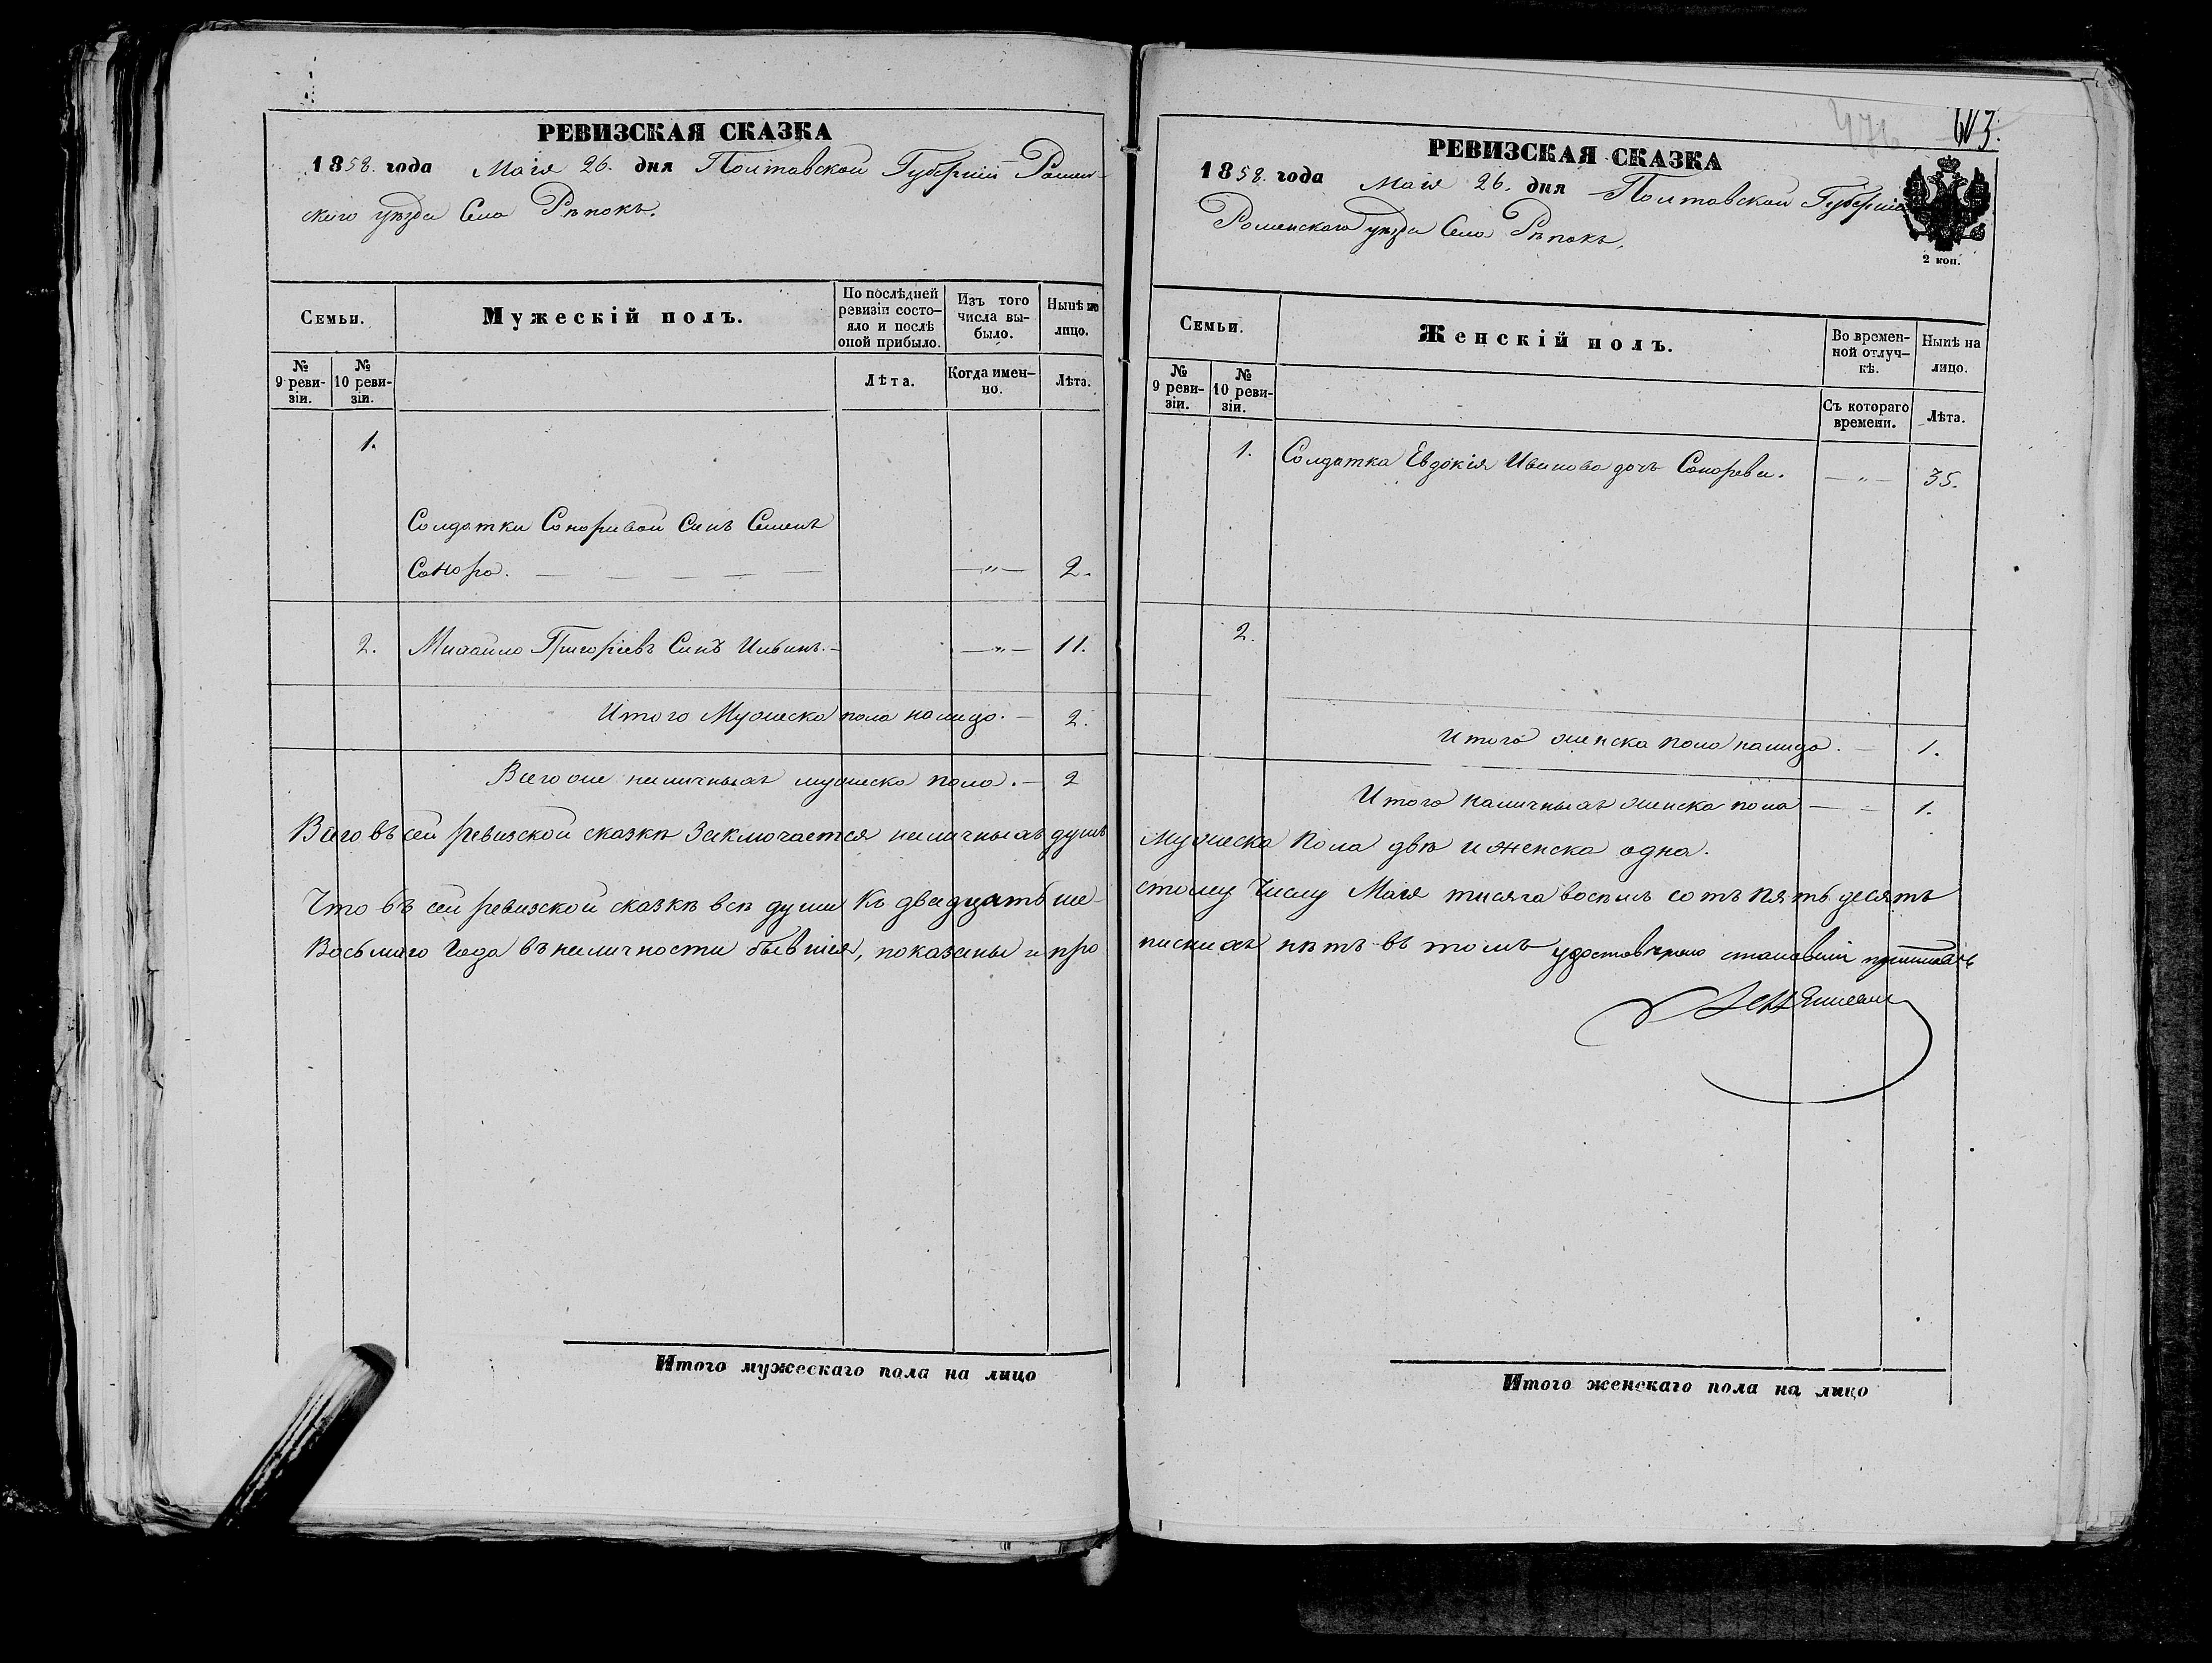 РЕВИЗСКАЯ СКАЗКА
1858. года Маія 26. дня Полтавской Губерніи Ромен-
скаго уѣзда Села Рѣпокъ.
Семьи.
Мужескій полъ.
По послѣдней ревизіи состо-
яло и послѣ оной прибыло.
Изъ того числа вы-
было.
Нынѣ на лицо.
№ 9 реви-
зіи.
№ 10 реви-
зіи.
Лѣта.
Когда имен-
но.
Лѣта.
1.
Солдатки Сынъ Семенъ
— „ — 2.
2. Михайло Григоріевъ Сынъ Ильинъ. — „ — 11.
Итого Мужеска пола налицо. — 2.
Всего же наличныхъ мужеска пола. — 2
Всего въ сей ревизской сказкѣ Заключается наличныхъ душъ
Что въ сей ревизской сказкѣ всѣ души Къ двадцать ше-
Восьмаго Года въ наличности бывшія, показаны и про
Итого мужескаго пола на лицо
603.
РЕВИЗСКАЯ СКАЗКА
1858. года Маія 26. дня Полтавской Губерніи
Роменскаго уѣзда Села Рѣпокъ.
2 коп.
Семьи.
Женскій полъ.
Во времен-
ной отлуч-
кѣ.
Нынѣ на лицо.
№ 9 реви-
зіи.
№ 10 реви-
зіи.
Съ котораго времени.
Лѣта.
1. Солдатка Евдокія Иванова дочь — „ — 35.
2.
Итого женска пола налицо. — 1.
Итого наличныхъ женска пола — 1.
мужеска пола двѣ и женска одна.
стому Числу Маія тисяча восѣмь сотъ пять десять
писныхъ нѣтъ въ томъ удостовѣряю становый приставъ
Итого женскаго пола на лицо